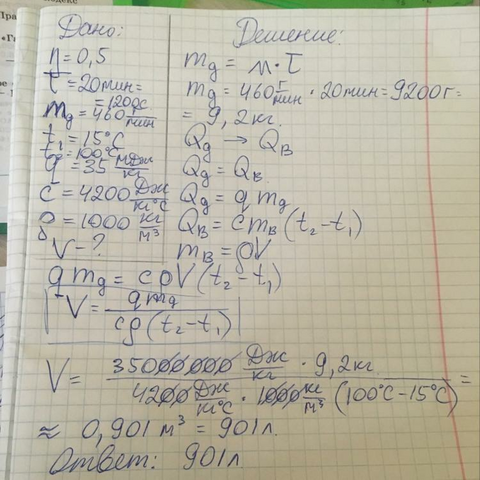 Дано:
η = 0,5
τ = 20мин =
= 1200с
m_g = 460 г/мин
t₁ = 15°C
t₂ = 100°C
q = 35 МДж/кг
c = 4200 Дж/кг°C
ρ = 1000 кг/м³
V - ?
Решение:
m_g = м · τ
m_g = 460 г/мин · 20мин = 9200г =
= 9,2 кг.
Q_g → Q_в
Q_g = Q_в.
Q_g = q m_g
Q_в = c m_в (t₂ - t₁)
m_в = ρV
q m_g = c ρ V (t₂ - t₁)
V = q m_g / cρ (t₂ - t₁)
V = 35000000 Дж/кг · 9,2 кг / 4200 Дж/кг°C · 1000 кг/м³ (100°C - 15°C) =
≈ 0,901 м³ = 901 л.
Ответ: 901 л